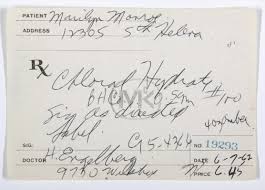 PATIENT Marilyn Monroe
ADDRESS 12305 5th Helena
Rx
Chloral Hydrate
0.5 Gm #100
Sig as directed
label
G5-4364
SIG: NO 19293
DOCTOR H. Engelberg DATE 6-7-62
9730 Wilshire PRICE 6.45